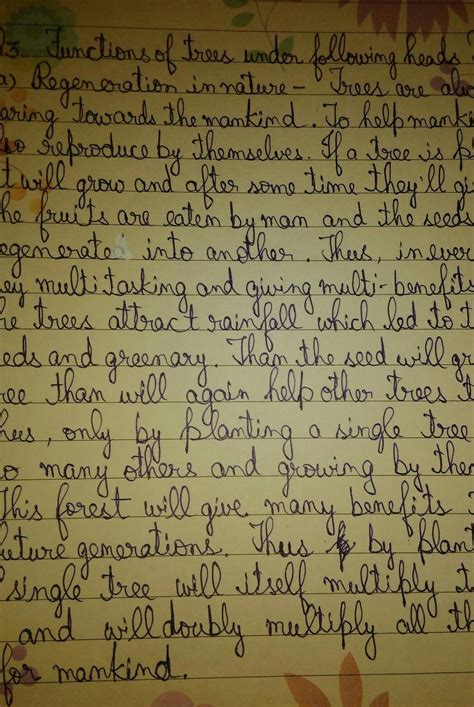 3 Functions of trees under following heads
a) Regeneration in nature - Trees are al
aring towards the mankind. To help manki
so reproduce by themselves. If a tree is p
t will grow and after some time they'll gi
he fruits are eaten by man and the seeds
egenerated into another. Thus, in ever
ey multitasking and giving multi-benefits
he trees attract rainfall which led to t
eds and greenary. Than the seed will gr
ree than will again help other trees t
hus, only by planting a single tree
so many others and growing by them
This forest will give many benefits
future generations. Thus by plant
single tree will itself multiply t
and will doubly multiply all th
for mankind.